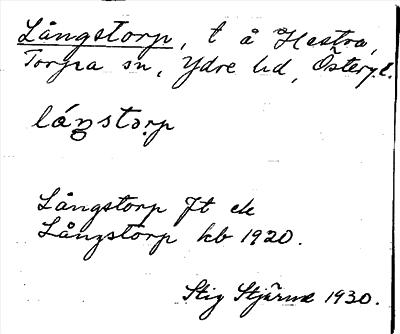 Långstorp, t å Hestra,
Torpa sn, Ydre hd, Österg.l.
Långstorp Jt ek
Långstorp kb 1920.
Stig Stjärne 1930.